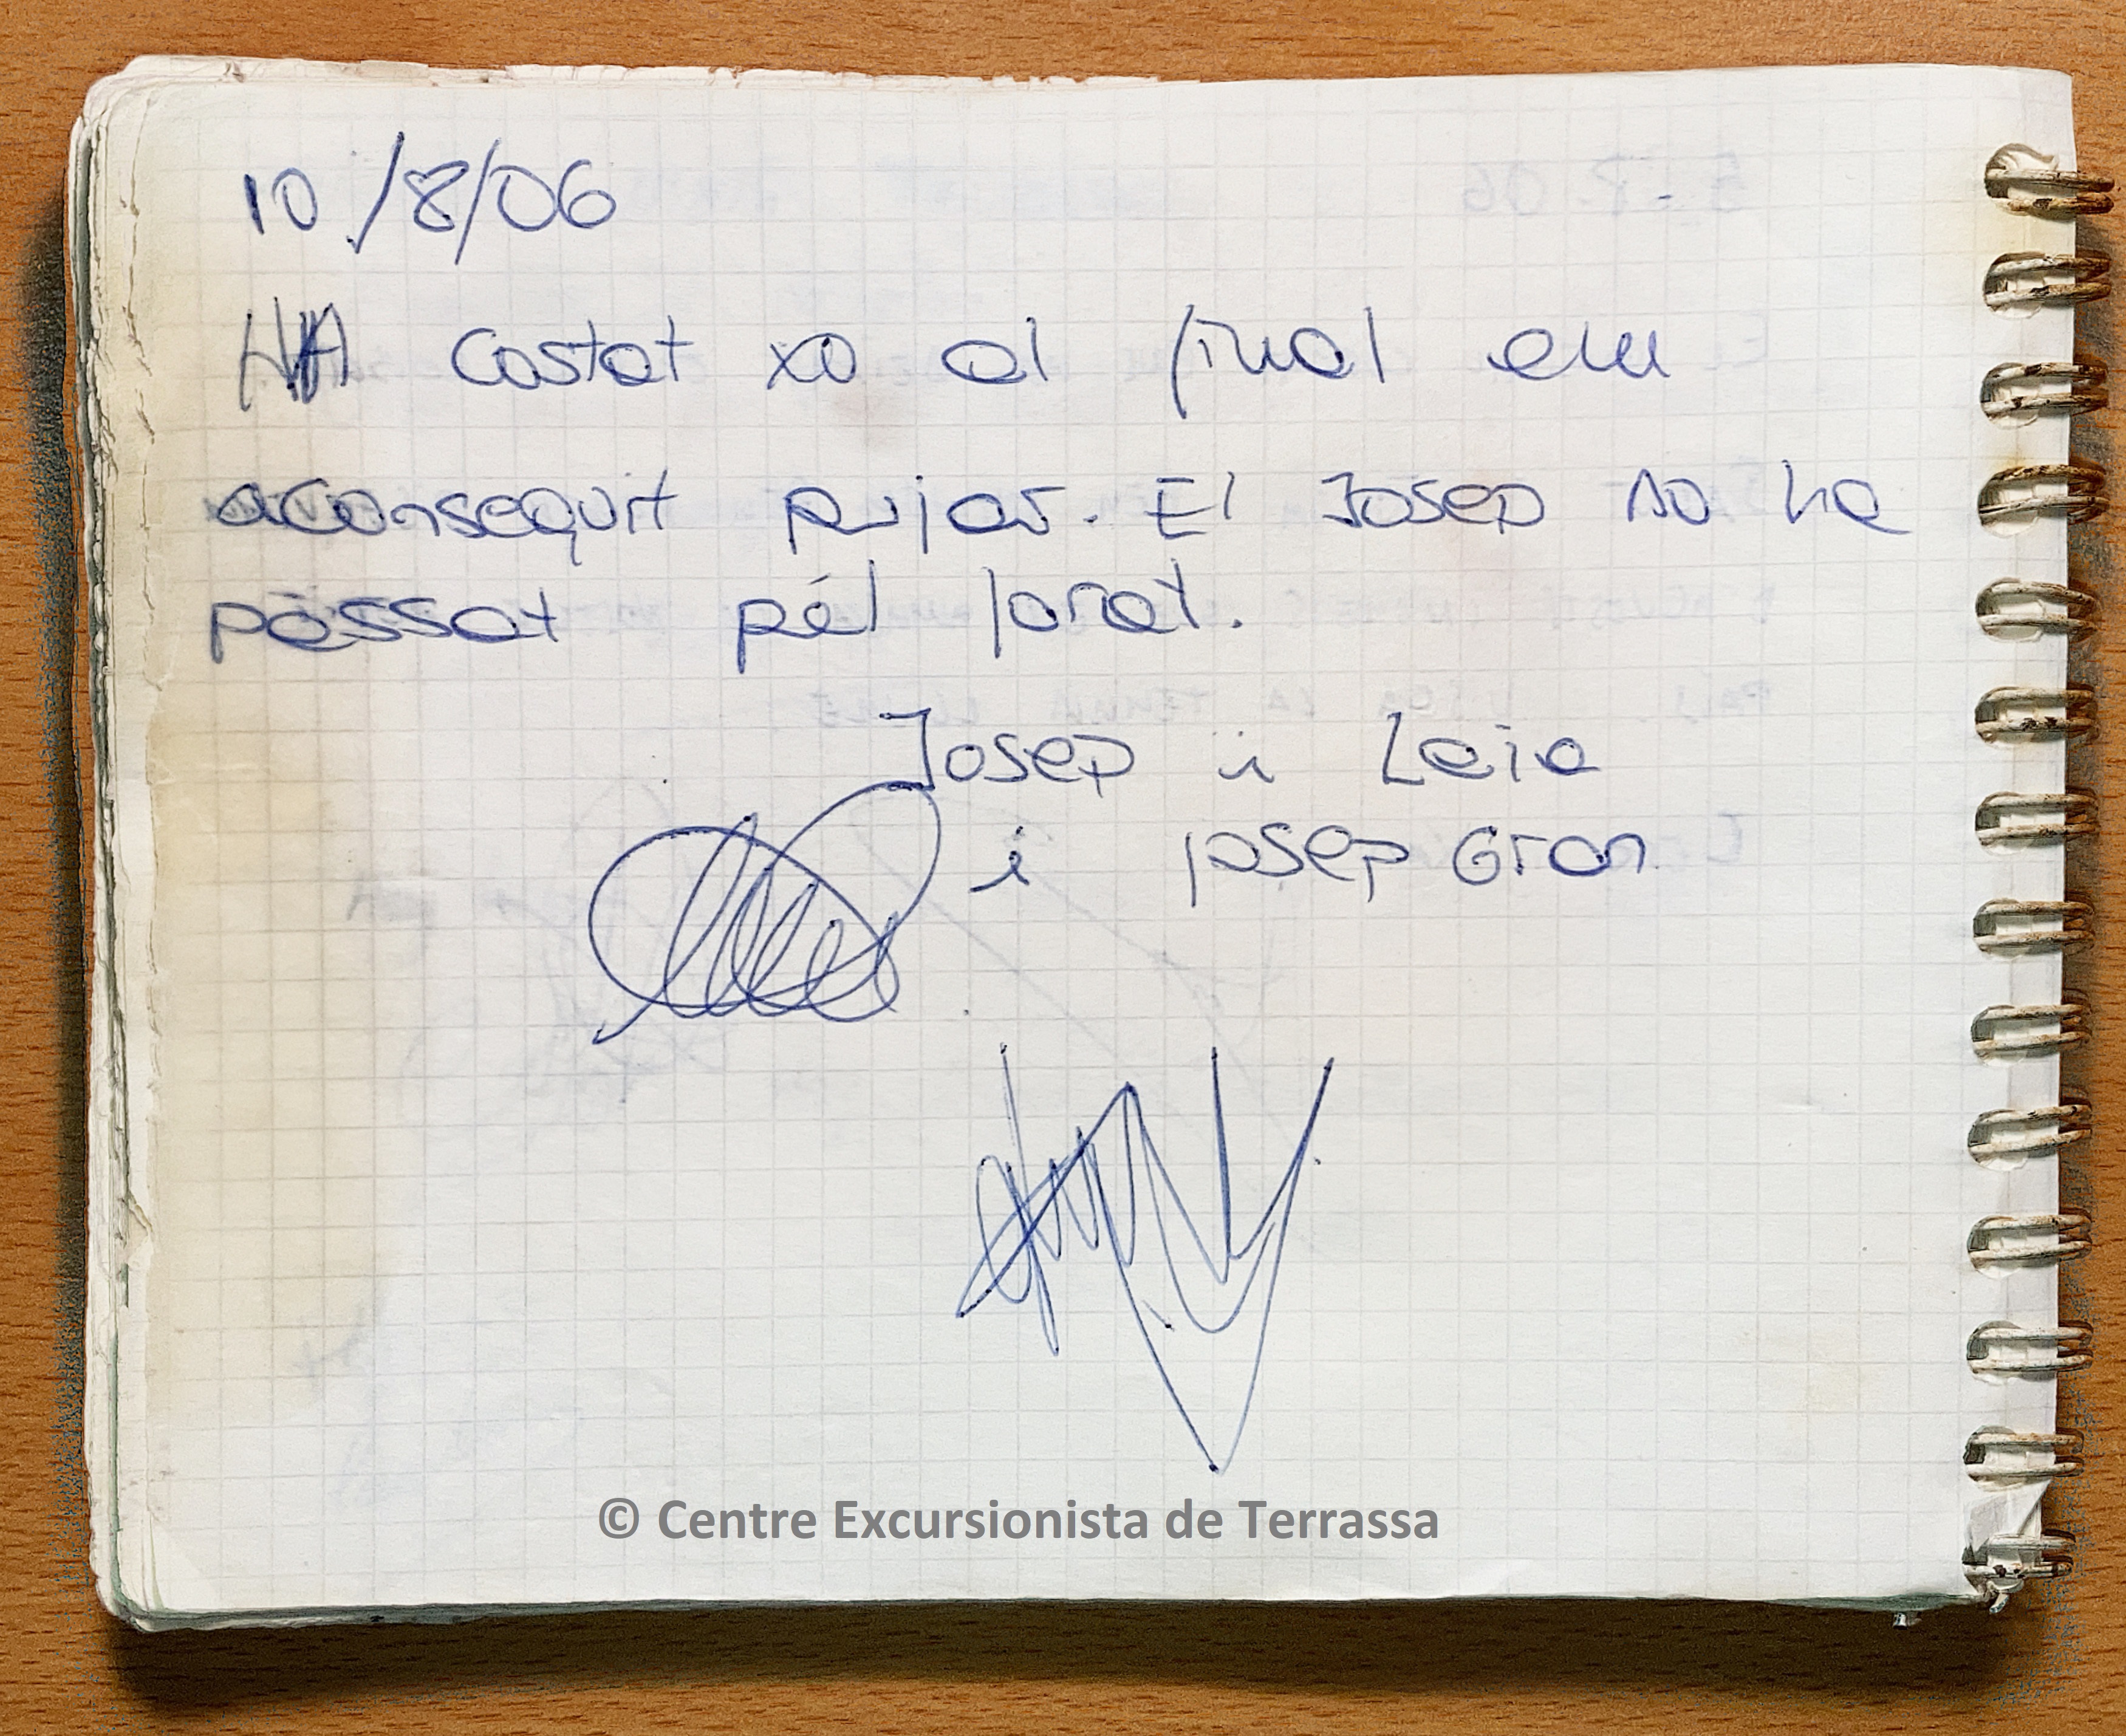 10/8/06
HA Costat xo al final em
aconseguit pujar. El Josep no ha
passat pel forat.
Josep i Leia
i josep Gran
© Centre Excursionista de Terrassa